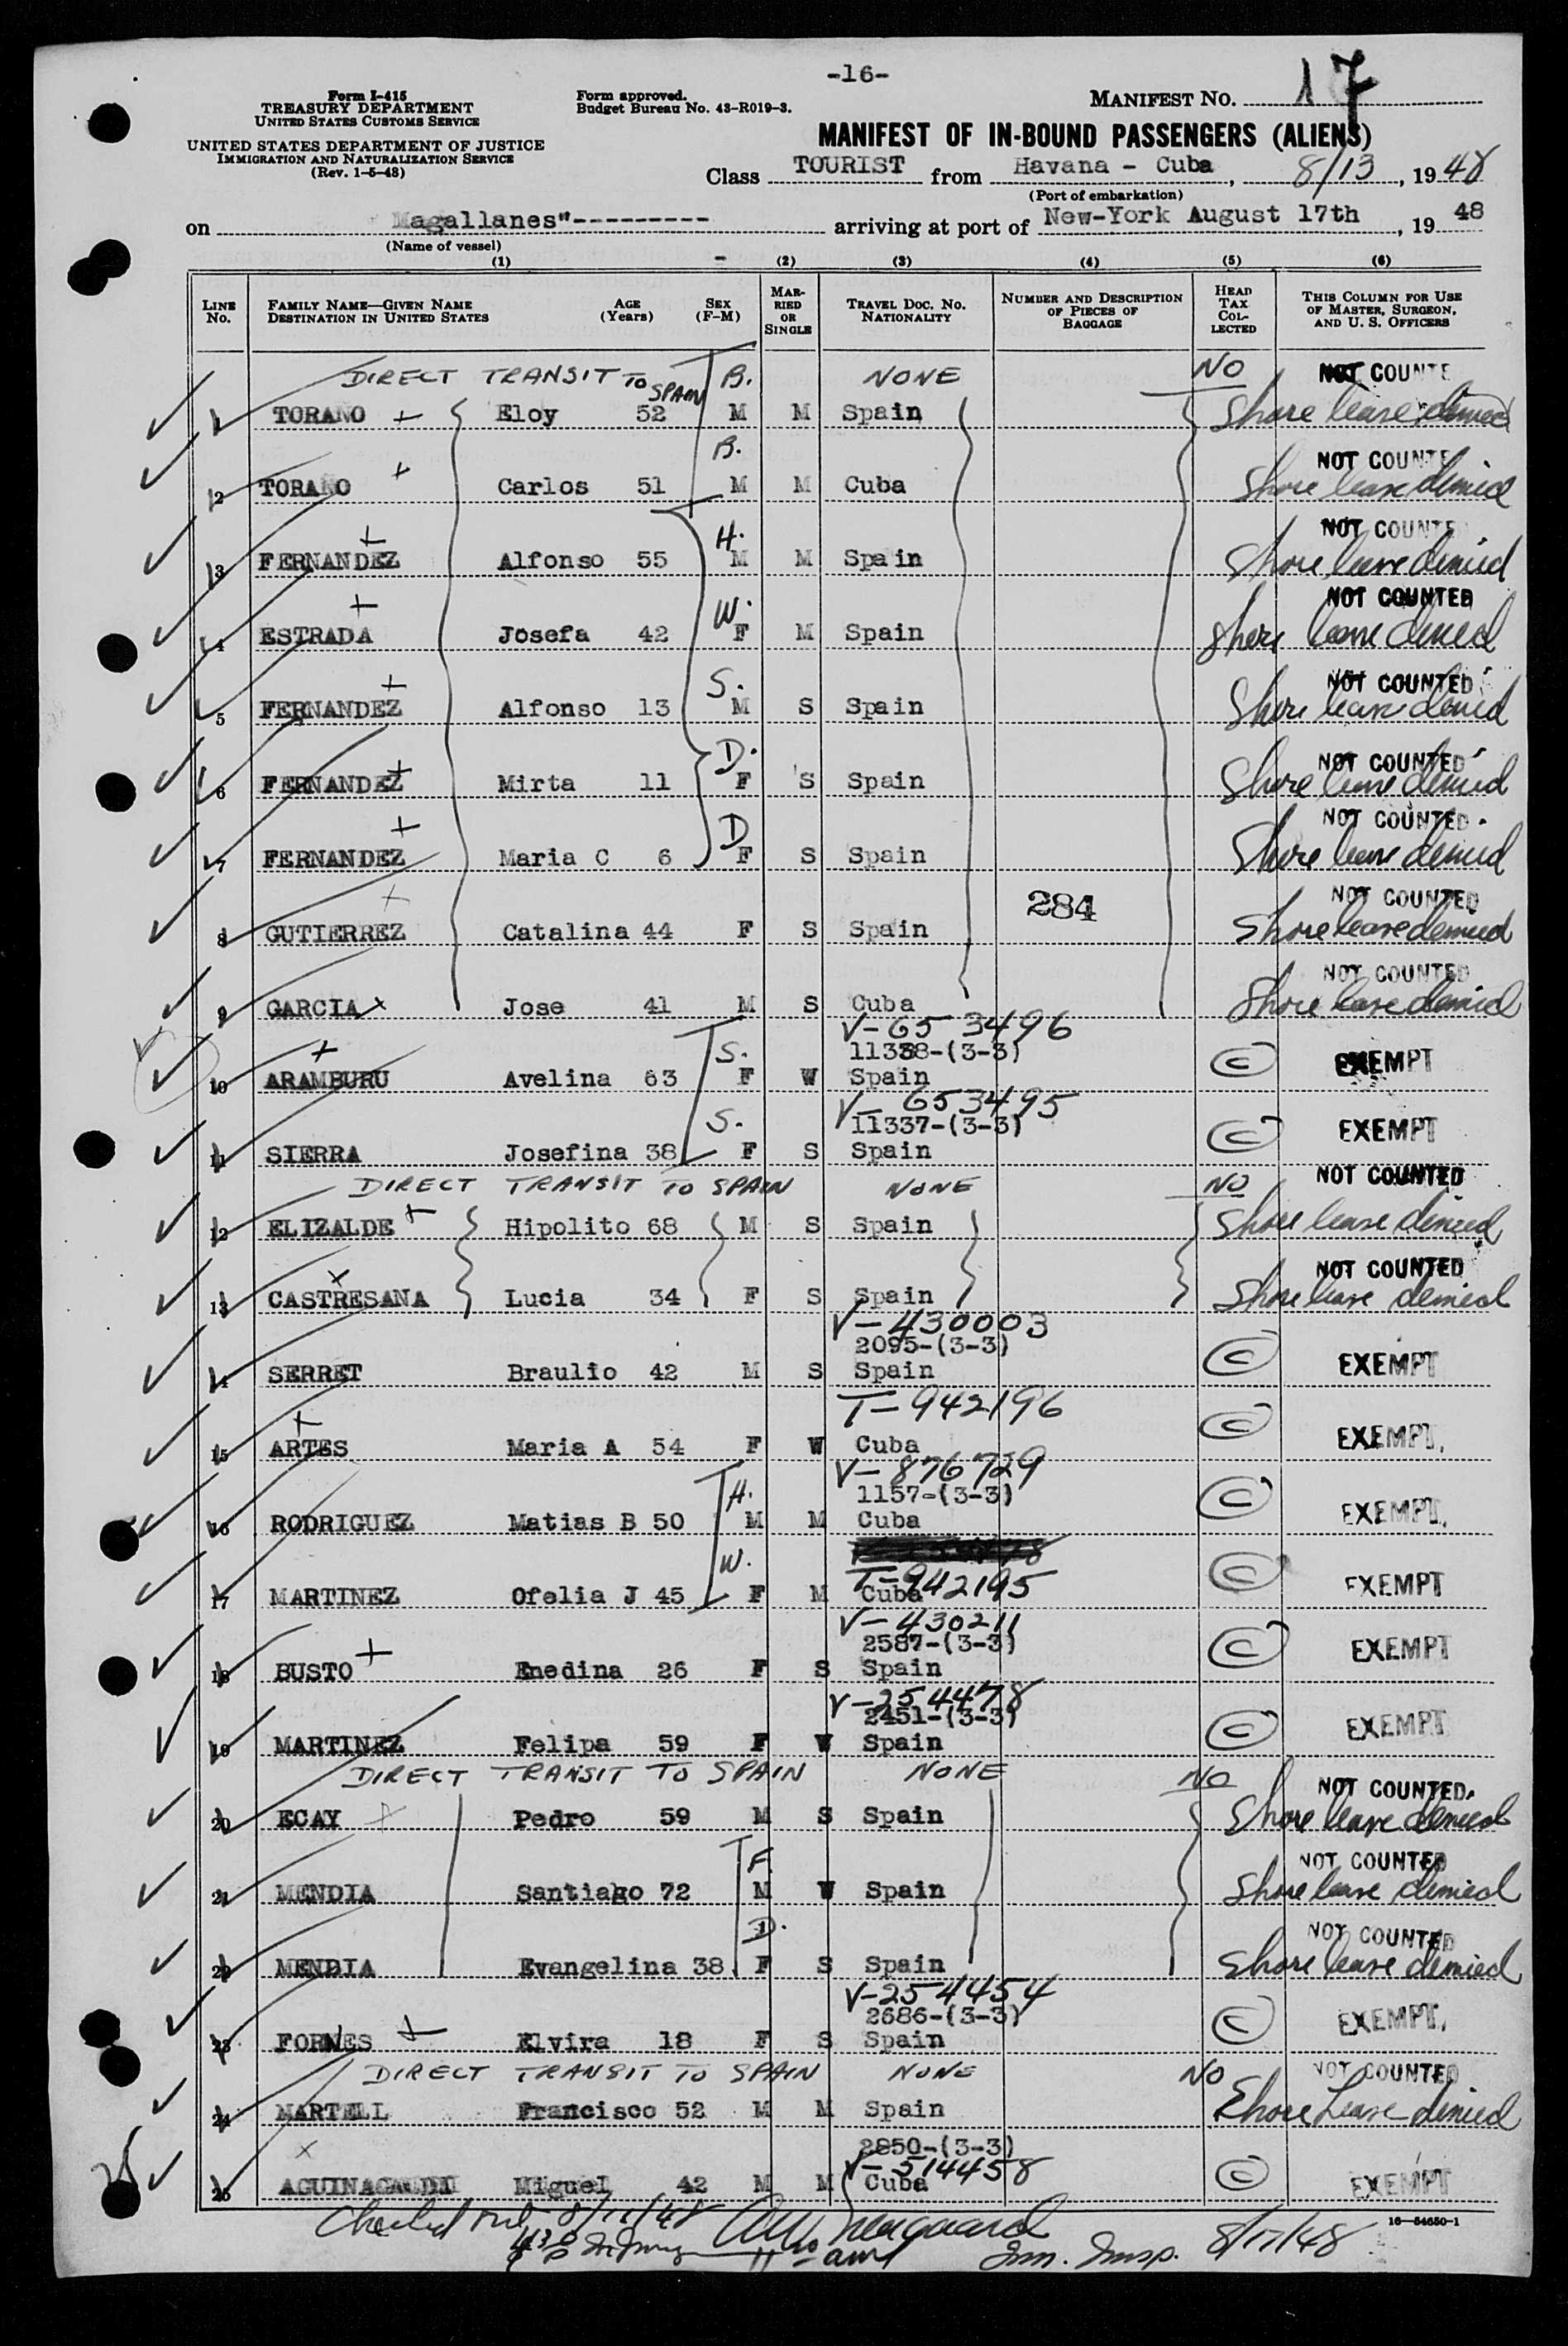 -16-
Form I-415
TREASURY DEPARTMENT
UNITED STATES CUSTOMS SERVICE
UNITED STATES DEPARTMENT OF JUSTICE
IMMIGRATION AND NATURALIZATION SERVICE
(Rev. 1-5-48)
Form approved.
Budget Bureau No. 43-R019-3.
MANIFEST NO. 17
MANIFEST OF IN-BOUND PASSENGERS (ALIENS)
Class TOURIST from Havana - Cuba, 8/13, 1948
(Port of embarkation)
on Magallanes"--------- arriving at port of New-York August 17th, 19 48
(Name of vessel)
(1) (2) (3) (4) (5) (6)
LINE NO. FAMILY NAME—GIVEN NAME DESTINATION IN UNITED STATES AGE (Years) SEX (F-M) MARRIED OR SINGLE TRAVEL DOC. NO. NATIONALITY NUMBER AND DESCRIPTION OF PIECES OF BAGGAGE HEAD TAX COLLECTED THIS COLUMN FOR USE OF MASTER, SURGEON, AND U. S. OFFICERS
DIRECT TRANSIT TO SPAIN B. NONE NO NOT COUNTE
1 TORAÑO Eloy 52 M M Spain Shore leave denied
B. NOT COUNTE
2 TORAÑO Carlos 51 M M Cuba Shore leave denied
H. NOT COUNTE
3 FERNANDEZ Alfonso 55 M M Spain Shore leave denied
W. NOT COUNTED
4 ESTRADA Josefa 42 F M Spain Shore leave denied
S. NOT COUNTED
5 FERNANDEZ Alfonso 13 M S Spain Shore leave denied
D. NOT COUNTED
6 FERNANDEZ Mirta 11 F S Spain Shore leave denied
D NOT COUNTED
7 FERNANDEZ Maria C 6 F S Spain Shore leave denied
284 NOT COUNTED
8 GUTIERREZ Catalina 44 F S Spain Shore leave denied
NOT COUNTED
9 GARCIA Jose 41 M S Cuba Shore leave denied
V-653496
S. 11338-(3-3) C EXEMPT
10 ARAMBURU Avelina 63 F W Spain
V-653495
S. 11337-(3-3) C EXEMPT
11 SIERRA Josefina 38 F S Spain
DIRECT TRANSIT TO SPAIN NONE NO NOT COUNTED
12 ELIZALDE Hipolito 68 M S Spain Shore leave denied
NOT COUNTED
13 CASTRESANA Lucia 34 F S Spain Shore leave denied
V-430003
2095-(3-3) C EXEMPT
14 SERRET Braulio 42 M S Spain
T-942196 C EXEMPT
15 ARTES Maria A 54 F W Cuba
V-876729
H. 1157-(3-3) C EXEMPT
16 RODRIGUEZ Matias B 50 M M Cuba
W. T-942195 C EXEMPT
17 MARTINEZ Ofelia J 45 F M Cuba
V-430211
2587-(3-3) C EXEMPT
18 BUSTO Enedina 26 F S Spain
V-254478
2451-(3-3) C EXEMPT
19 MARTINEZ Felipa 59 F W Spain
DIRECT TRANSIT TO SPAIN NONE NO NOT COUNTED
20 ECAY Pedro 59 M S Spain Shore leave denied
F. NOT COUNTED
21 MENDIA Santiago 72 M W Spain Shore leave denied
D. NOT COUNTED
22 MENDIA Evangelina 38 F S Spain Shore leave denied
V-254454
2686-(3-3) C EXEMPT
23 FORNES Elvira 18 F S Spain
DIRECT TRANSIT TO SPAIN NONE NO NOT COUNTED
24 MARTELL Francisco 52 M M Spain Shore Leave denied
2850-(3-3)
V-514458 C EXEMPT
25 Miguel 42 M M Cuba
25
16—54650-1
Imm. Insp. 8/17/48